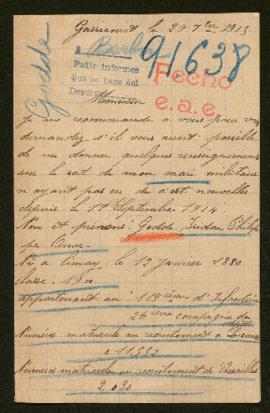 Gargencourt le 29 7bre 1915
Godde
A Barba
91638
Pedir informes
que se hace así
Devolver
Hecho
e.a.e.
Monsieur
Je me recommande a vous pour vous
demandez s'il vous serait possible
de me donner quelques renseignements
sur le sort de mon mari militaire
n ayant pas eu de c'est nouvelles
depuis le 17 Septembre 1914.
Nom et prénoms: Godde Tristan Philip
pe Omer
Né a Limay, le 12 Janvier 1880
classe 1900
appartenant au: 119ième d'Infanterie
26ième compagnie de
Numéro matricule au recrutement a
a 11.552
Numéro matricule au recrutement de Versailles
2.030